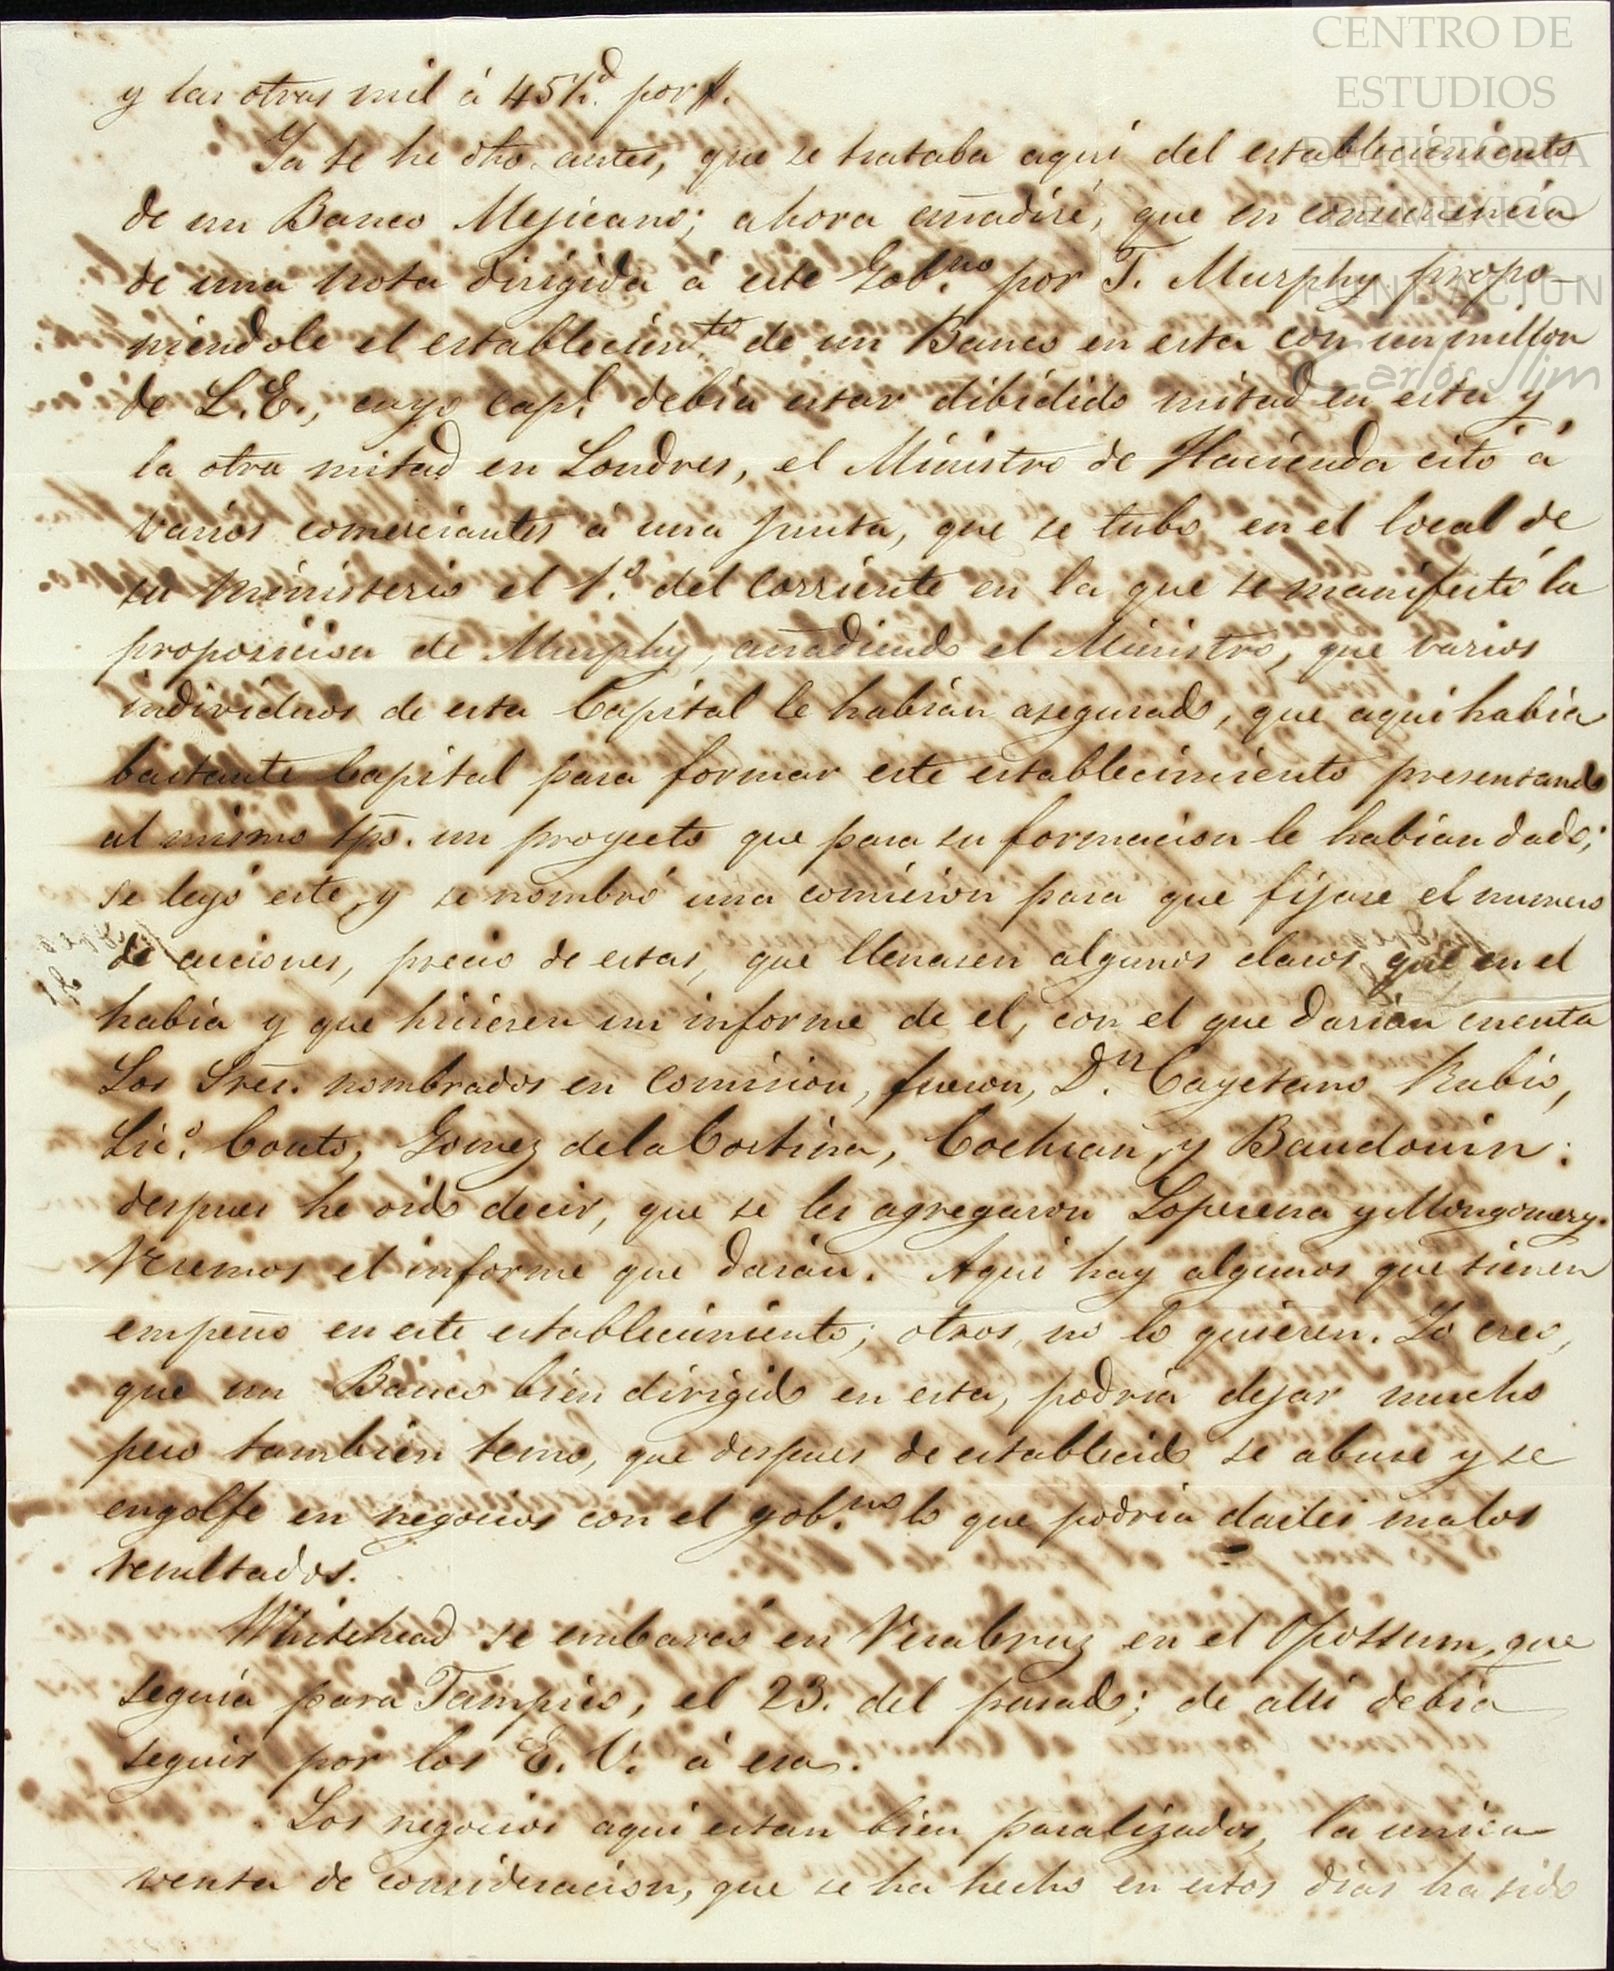 CENTRO DE
ESTUDIOS
DE HISTORIA
DE MEXICO
FUNDACION
Carlos Slim
y las otras mil á 45½d. por $.
Ya te he dho. antes, que se trataba aquí del establecimiento
de un Banco Mejicano; ahora añadiré, que en consecuencia
de una nota dirigida á este Gob.no por T. Murphy propo-
niendole el establecim.to de un Banco en esta con un millon
de L.E., cuyo Cap.l debia estar dibidido mitad en esta y
la otra mitad en Londres, el Ministro de Hacienda citó á
varios comerciantes á una junta, que se tubo en el local de
su Ministerio el 1.º del Corriente en la que se manifestó la
proposicion de Murphy, añadiendo el Ministro, que varios
individuos de esta Capital le habian asegurado, que aqui habia
bastante Capital para formar este establecimiento presentando
al mismo tpo. un proyecto que para su formacion le habian dado;
se leyó este, y se nombró una comision para que fijase el numero
de acciones, precio de estas, que llenasen algunos claros que en el
habia y que hiciesen un informe de el, con el que darian cuenta
Los Sres. nombrados en Comision, fueron, D.n Cayetano Rubio,
Lic.º Couto, Gomez de la Cortina, Cochran, y Baudouin:
despues he oido decir, que se les agregaron Loperena y Mongomery.
Veremos el informe que darán. Aqui hay algunos que tienen
empeño en este establecimiento; otros, no lo quieren. Yo creo,
que un Banco bien dirigido en esta, podria dejar mucho
pero tambien temo, que despues de establecido se abuse y se
engolfe en negocios con el gob.no lo que podria darles malos
resultados.
Whitehead se embarcó en Veracruz en el Opossum, que
seguia para Tampico, el 23. del pasado; de alli debia
seguir por los E. U. á esa.
Los negocios aqui estan bien paralizados, la unica
venta de consideracion, que se ha hecho en estos dias ha sido